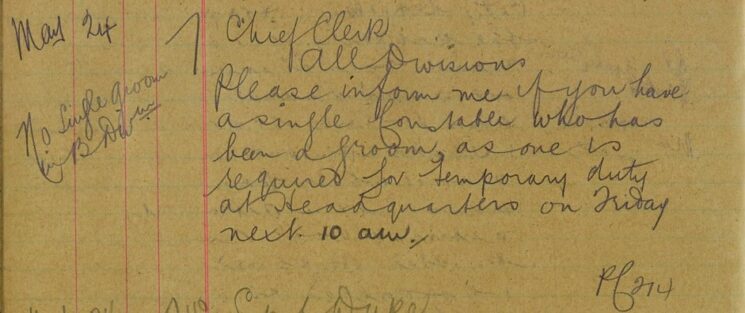 May 24
Chief Clerk
All Divisions
Please inform me if you have
a single Constable who has
been a groom, as one is
required for temporary duty
at Headquarters on Friday
next. 10 am.
PC 214
No Single groom
in B Divn